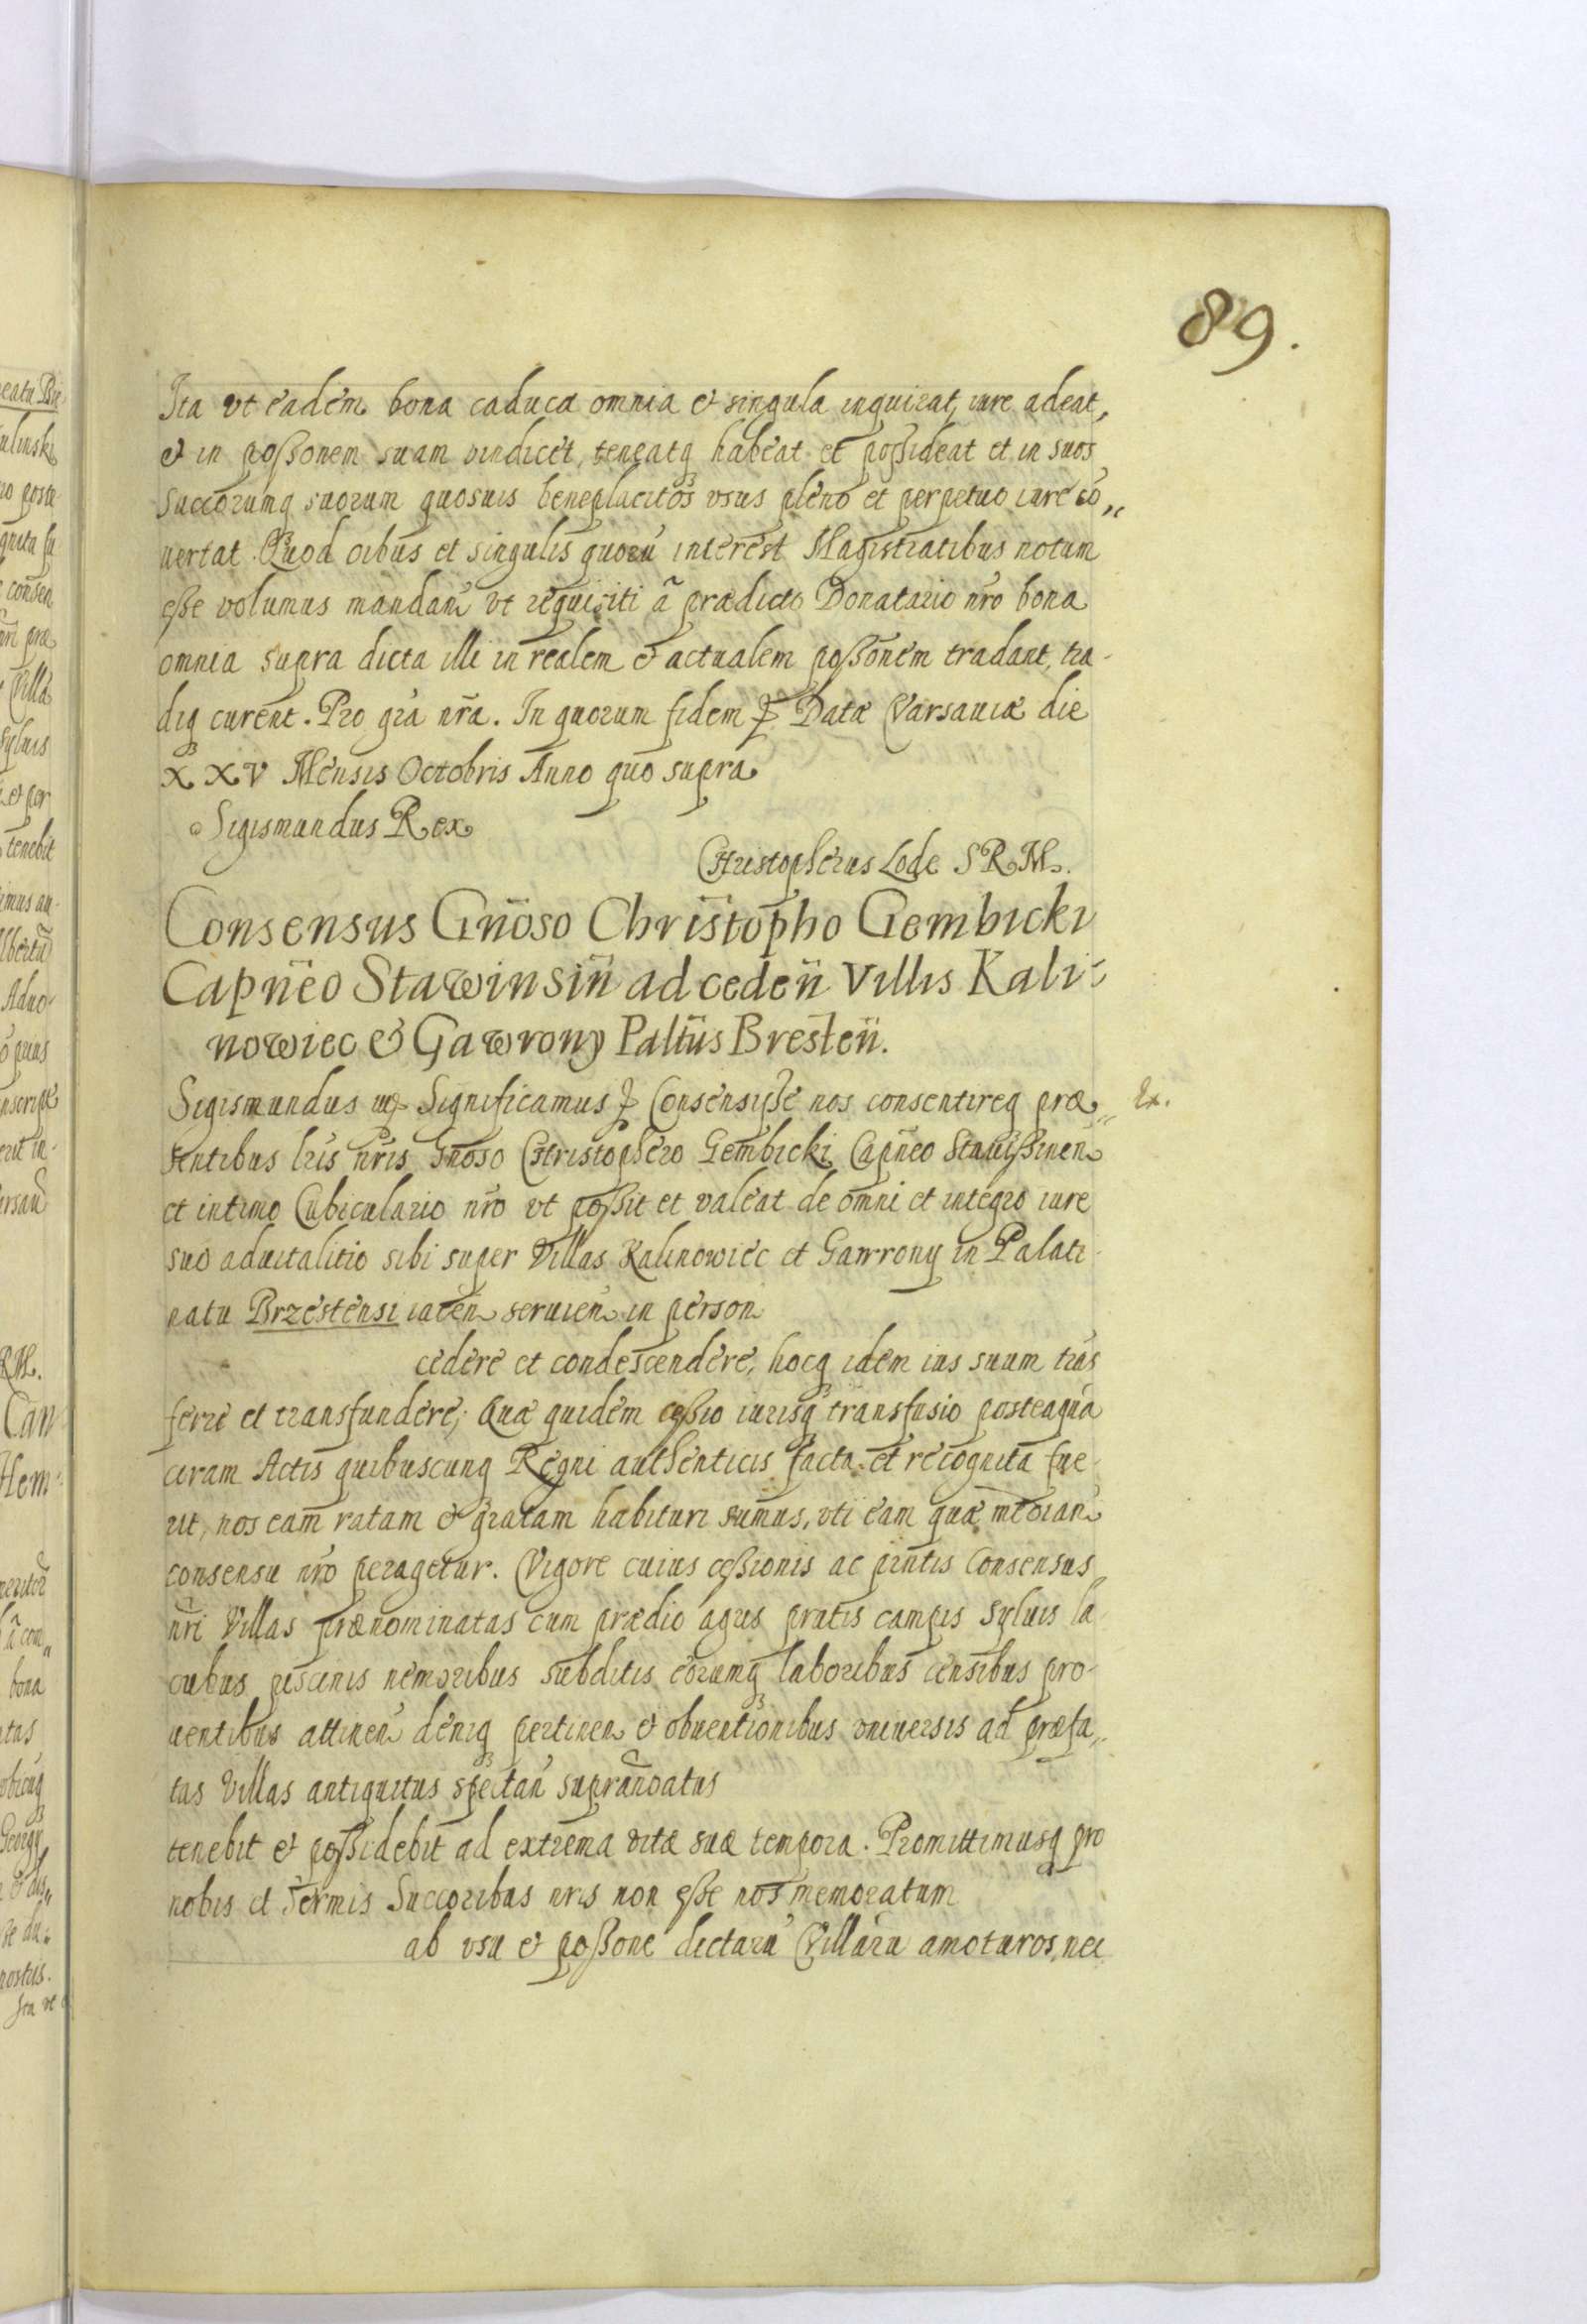 89.
Ita vt eadem bona caduca omnia et singula inquirat, iure adeat,
et in possonem suam vindicet, teneatq habeat et possideat et in suos
Succorumq suorum quosuis beneplacitos vsus pleno et perpetuo iure cō„
uertat. Quod oibus et singulis quorū interest Magistratibus notum
esse volumus mandañ vt requisiti ã prædicto Donatario nrõ bona
omnia supra dicta illi in realem et actualem possonem tradant, tra-
diq curent. Pro gra nrã. In quorum fidem Datæ Varsauiæ die
XXV Mensis Octobris Anno quo supra
Sigismundus Rex
Christopherus Lode SRM.
Consensus Gnoso Christopho Gembicki
Capneo Stawinsin ad ceden Villis Kali-
nowiec et Gawrony Paltus Bresten.
Sigismundus Significamus Consensisse nos consentireq præ„
Ex.
sentibus lris nris Gnoso Christophero Gembicki Capneo Stauissinen
et intimo Cubiculario nro vt possit et valeat de omni et integro iure
suo aduitalitio sibi super Villas Kalinowiec et Gawrony in Palati-
natu Brzestensi iacen seruien in person
cedere et condescendere, hocq idem ius suum trãs
ferre et transfundere; Quæ quidem cessio iurisq transfusio posteaquã
coram Actis quibuscunq Regni authenticis facta et recognita fue-
rit, nos eam ratam et gratam habituri sumus, vti eam quæ mtoian
consensu nro peragetur. Vigore cuius cessionis ac pñtis Consensus
nri Villas prænominatas cum prædio agris pratis campis Syluis la-
cubus piscinis nemoribus subditis eorumq laboribus censibus pro-
uentibus attinen deniq pertinen et obuentionibus vniuersis ad præfa„
tas Villas antiquitus spectan supranoatus
tenebit et possidebit ad extrema vitæ suæ tempora. Promittimusq pro
nobis et Sermis Succoribus nris non esse nos memoratum
ab vsu et possone dictarũ Villarũ amoturos, nec